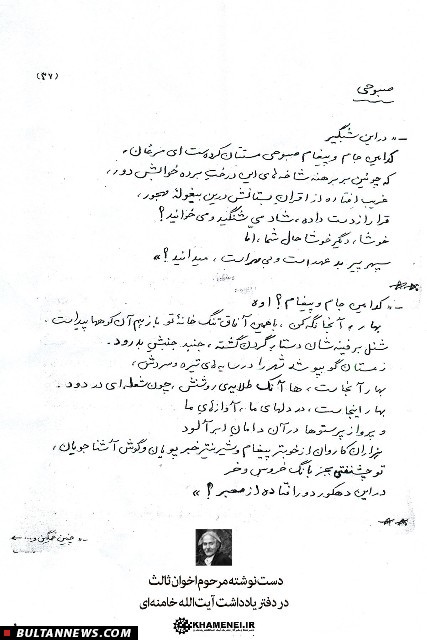 (۴۷)
صبوحی
-« در این شبگیر
کدامین جام و پیغام صبوحی مستتان کرده‌ست ای مرغان،
که چونین بر برهنه شاخه‌های این درخت برده خوابش دور،
غریب افتاده از اقران بستانش درین بیغولهٔ مهجور،
قرار از دست داده، شاد می‌شنگید و می‌خوانید؟
خوشا، دیگر خوشا حال شما، اما
سپهر پیر بدعهد است و بی‌مهر است، میدانید؟ »
-« کدامین جام و پیغام؟ اوه
بهار، آنجا نگه کن، با همین آفاق تنگ خانهٔ تو باز هم آن کوهها پیداست.
شنل برفینه‌شان دستار گردن گشته، جنبد جنبش بدرود.
زمستان گو بپوشد شهر را در سایه‌های تیره و سردش،
بهار آنجاست، ها آنک طلایه‌ی روشنش، چون شعله‌ای در دود.
بهار اینجاست، در دلهای ما، آوازهای ما
و پرواز پرستوها در آن دامان ابرآلود
هزاران کاروان از خوبتر پیغام و شیرین‌تر خبر پویان و گوش آشنا جویان،
تو چشنفتی بجز بانگ خروس و خر
در این دهکور دور افتاده از معبر؟ »
-« چنین غمگین و... »
دست‌نوشته مرحوم اخوان ثالث
در دفتر یادداشت آیت‌الله خامنه‌ای
KHAMENEI.IR
BULTANNEWS.COM